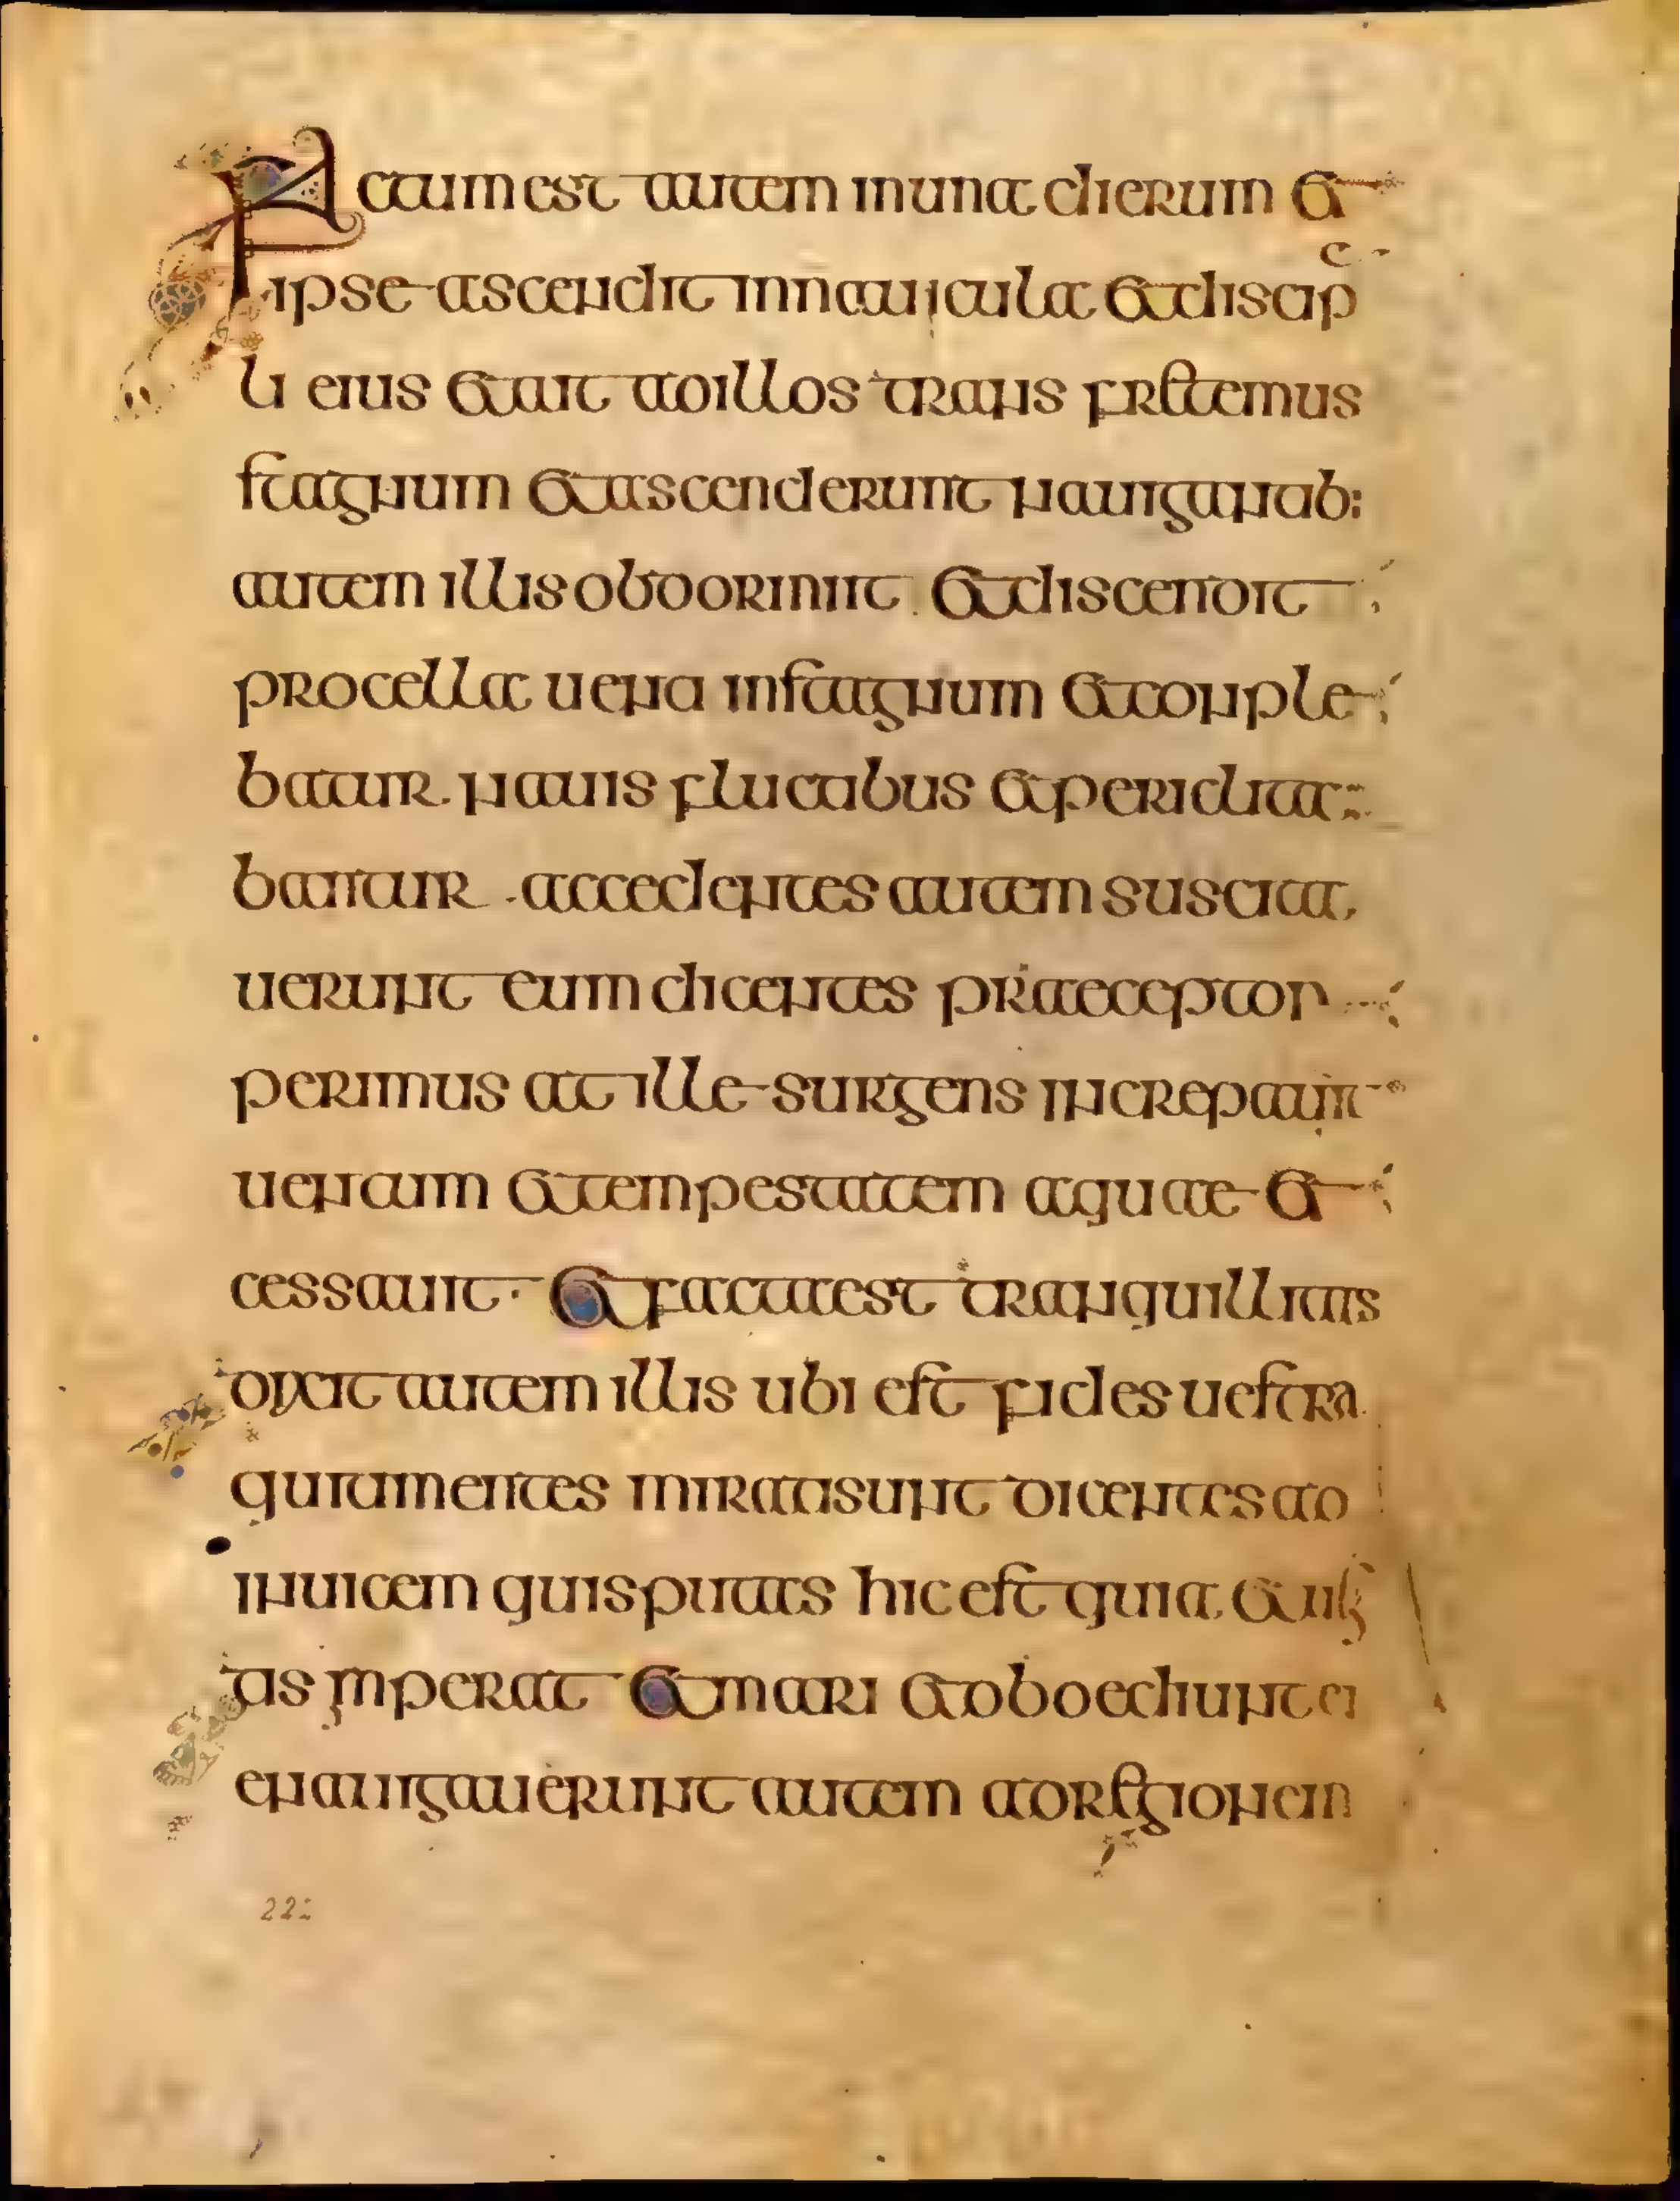 Factum est autem in una dierum et
ipse ascendit in nauicula et discip
li eius et ait ad illos trans fretemus
stagnum et ascenderunt nauigantib:
autem illis obdorminit. et discendit
procella uenti in stagnum et conple
batur. nauis fluctibus et periclita
bantur. accedentes autem suscita
uerunt eum dicentes praeceptor
perimus at ille surgens increpauit
uentum et tempestatem aquae et
cessauit. et facta est tranquillitas
dixit autem illis ubi est fides uestra
qui timentes mirati sunt dicentes ad
inuicem quis putas hic est quia et uen
tis imperat et mari et oboediunt ei
enauigauerunt autem ad regionem
222